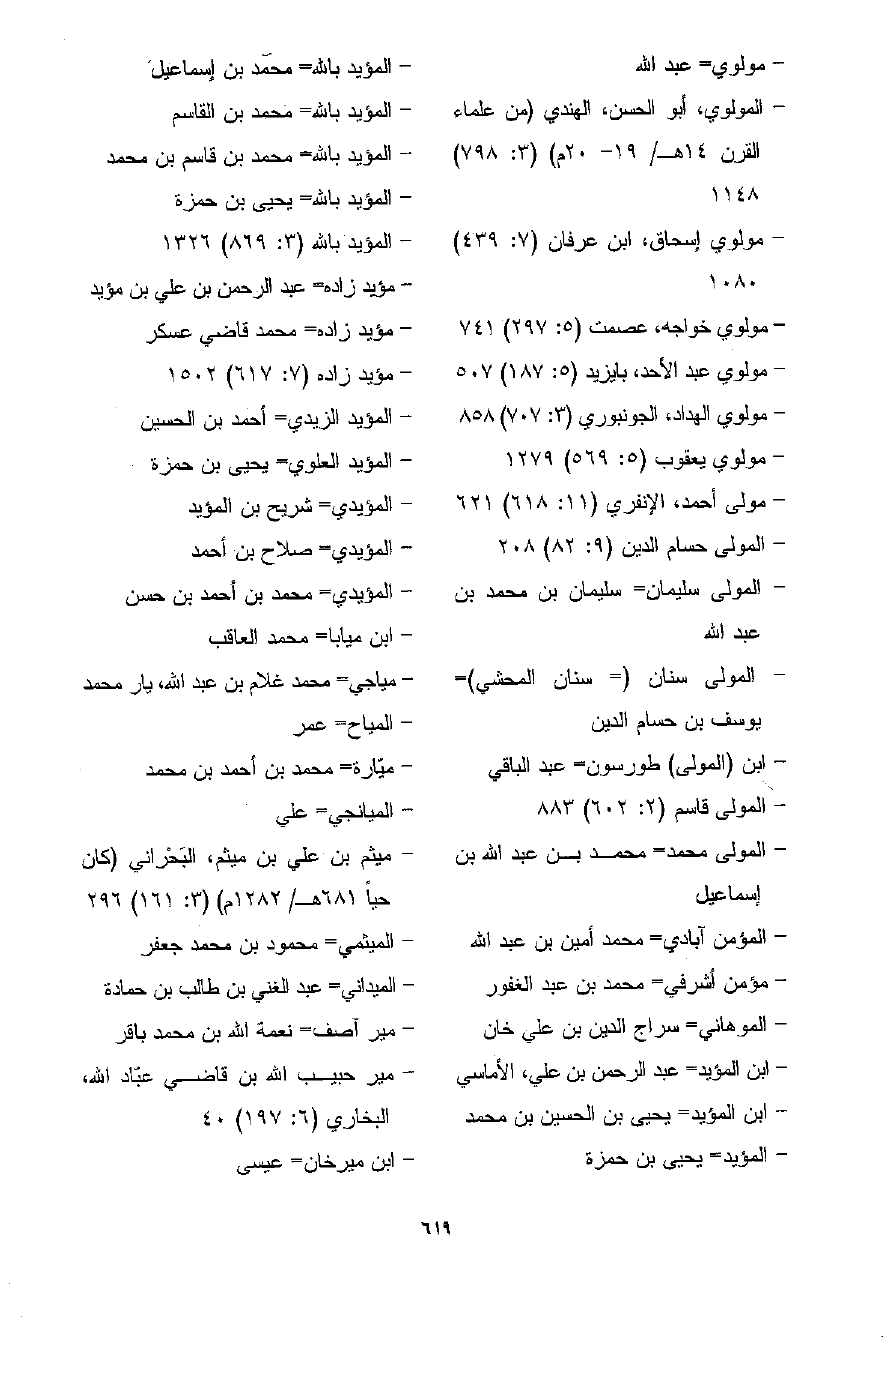 - مولوي= عبد الله
- المولوي، أبو الحسن، الهندي (من علماء
القرن ١٤هـ/ ١٩- ٢٠م) (٣: ٧٩٨)
١١٤٨
- مولوي إسحاق، ابن عرفان (٧: ٤٣٩)
١٠٨٠
- مولوي خواجه، عصمت (٥: ٢٩٧) ٧٤١
- مولوي عبد الأحد، بايزيد (٥: ١٨٧) ٥٠٧
- مولوي الهداد، الجونبوري (٣: ٧٠٧) ٨٥٨
- مولوي يعقوب (٥: ٥٦٩) ١٢٧٩
- مولى أحمد، الإنفري (١١: ٦١٨) ٦٢١
- المولى حسام الدين (٩: ٨٢) ٢٠٨
- المولى سليمان= سليمان بن محمد بن
عبد الله
- المولى سنان (= سنان المحشي)=
يوسف بن حسام الدين
- ابن (المولى) طورسون= عبد الباقي
- المولى قاسم (٢: ٦٠٢) ٨٨٣
- المولى محمد= محمد بن عبد الله بن
إسماعيل
- المؤمن آبادي= محمد أمين بن عبد الله
- مؤمن أشرفي= محمد بن عبد الغفور
- الموهاني= سراج الدين بن علي خان
- ابن المؤيد= عبد الرحمن بن علي، الأماسي
- ابن المؤيد= يحيى بن الحسين بن محمد
- المؤيد= يحيى بن حمزة
- المؤيد بالله= محمّد بن إسماعيل
- المؤيد بالله= محمد بن القاسم
- المؤيد بالله= محمد بن قاسم بن محمد
- المؤيد بالله= يحيى بن حمزة
- المؤيد بالله (٣: ٨٦٩) ١٣٢٦
- مؤيد زاده= عبد الرحمن بن علي بن مؤيد
- مؤيد زاده= محمد قاضي عسكر
- مؤيد زاده (٧: ٦١٧) ١٥٠٢
- المؤيد الزيدي= أحمد بن الحسين
- المؤيد العلوي= يحيى بن حمزة
- المؤيدي= شريح بن المؤيد
- المؤيدي= صلاح بن أحمد
- المؤيدي= محمد بن أحمد بن حسن
- ابن ميابا= محمد العاقب
- مياجي= محمد غلام بن عبد الله، يار محمد
- المياح= عمر
- ميّارة= محمد بن أحمد بن محمد
- الميانجي= علي
- ميثم بن علي بن ميثم، البَحْراني (كان
حياً ٦٨١هـ/ ١٢٨٢م) (٣: ١٦١) ٢٩٦
- الميثمي= محمود بن محمد جعفر
- الميداني= عبد الغني بن طالب بن حمادة
- مير آصف= نعمة الله بن محمد باقر
- مير حبيب الله بن قاضي عبّاد الله،
البخاري (٦: ١٩٧) ٤٠
- ابن ميرخان= عيسى
٦١٩